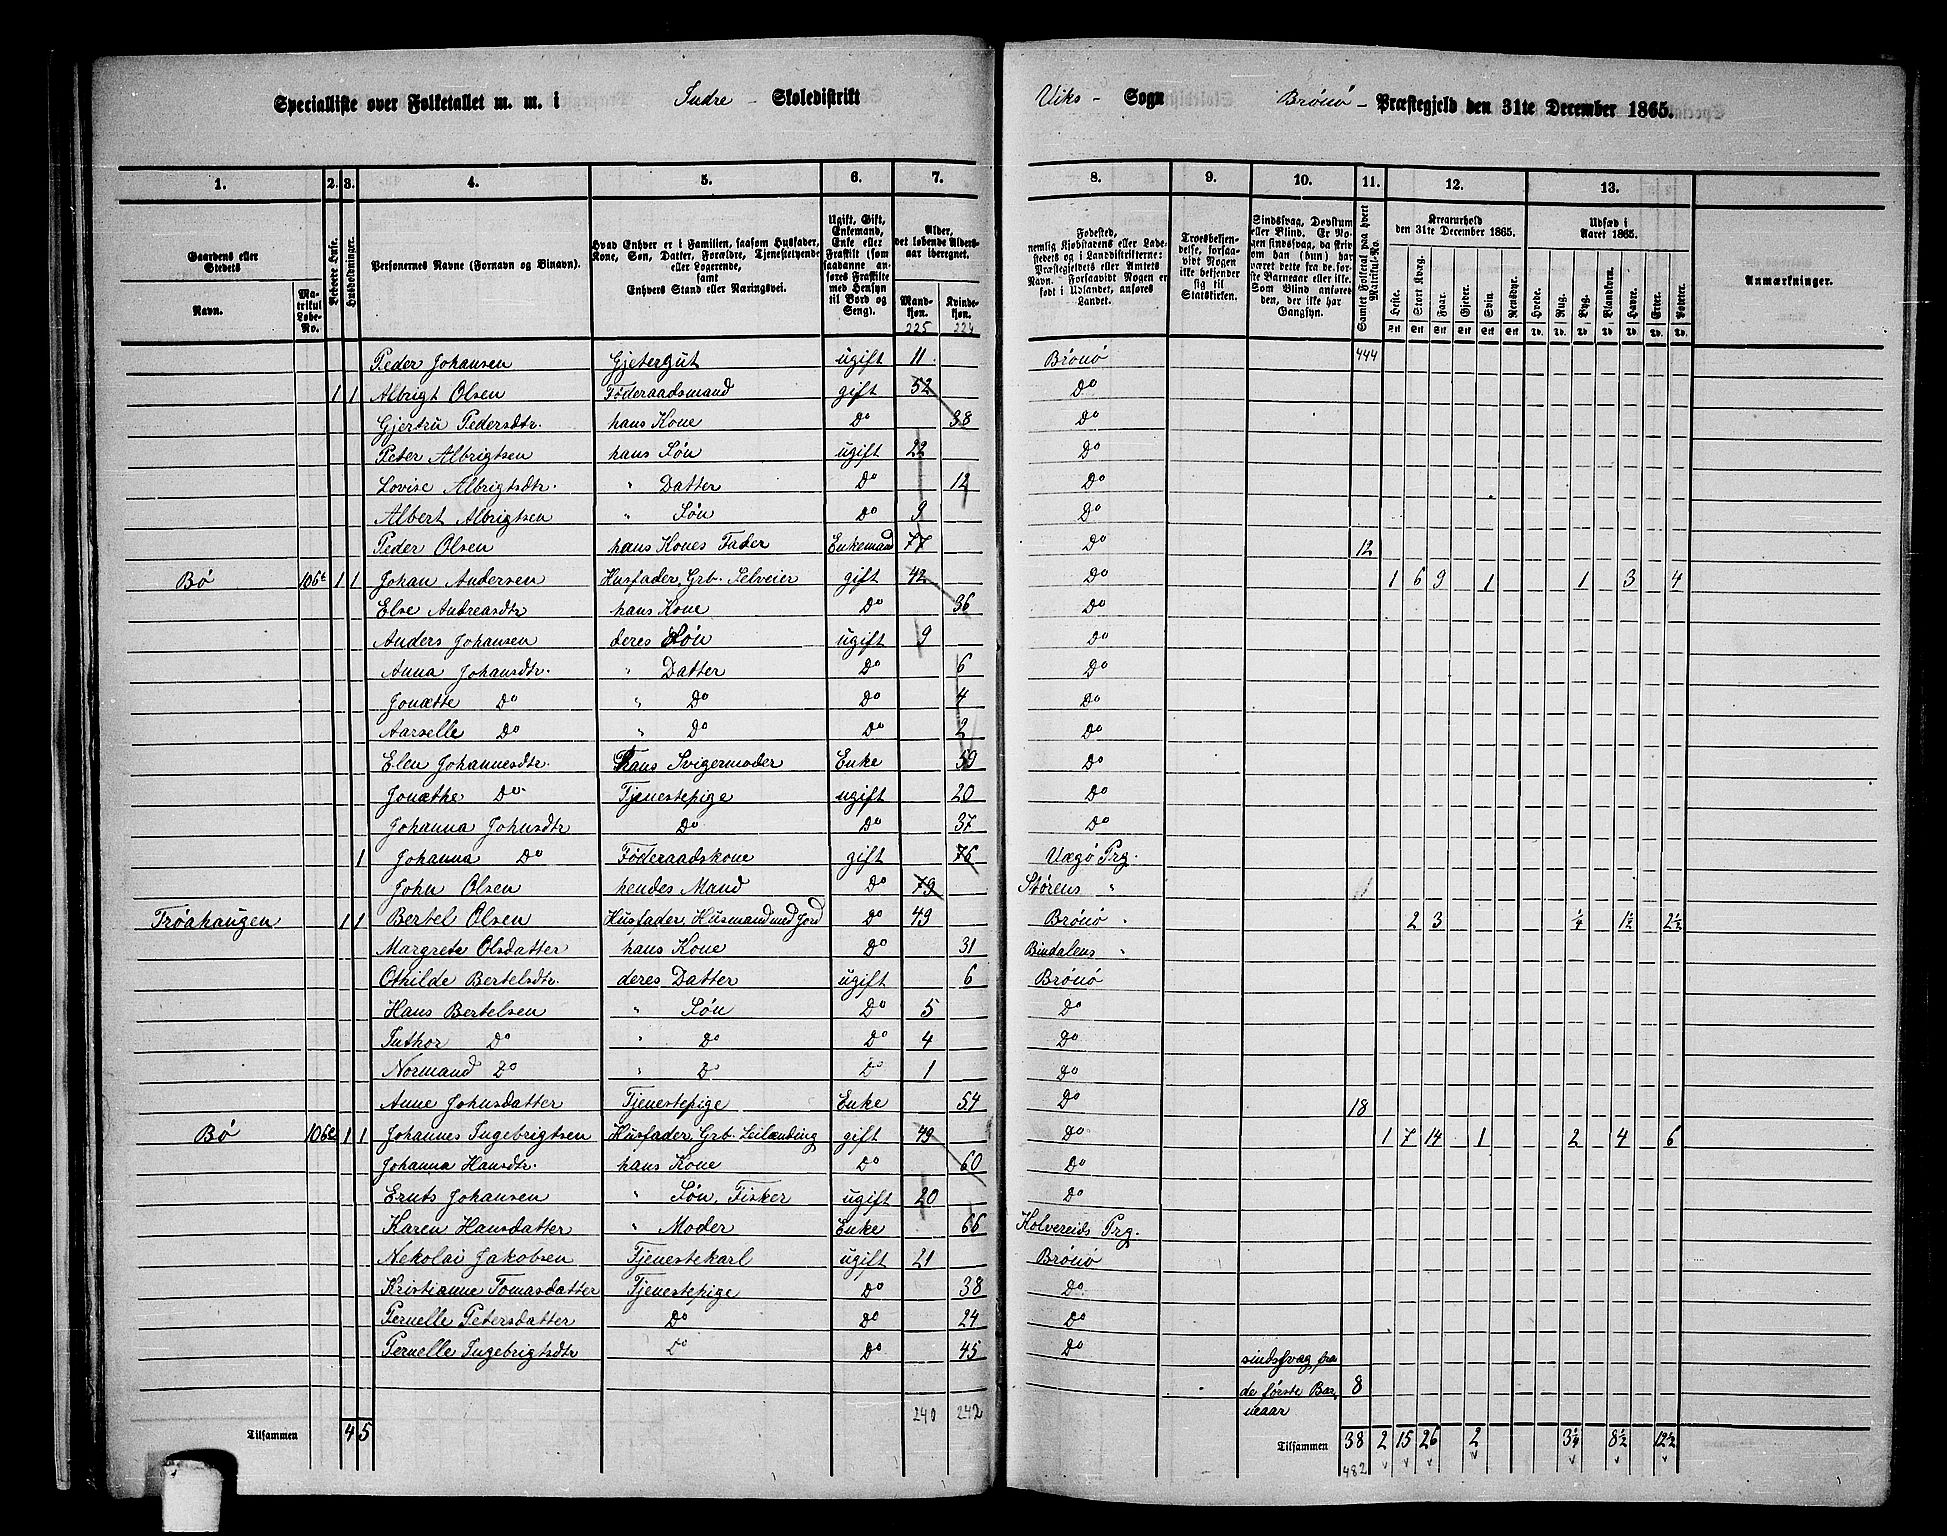 Specialliste over Folketallet m. m. i Indre Skoledistrikt Viks Sogn Brönö Præstegjeld den 31te December 1865.
1. 2. 3. 4. 5. 6. 7. 8. 9. 10. 11. 12. 13.
Gaardens eller Stedets Navn. Matrikul Løbe-No. Beboede Huse. Husholdninger. Personernes Navne (Fornavn og Binavn). Hvad Enhver er i Familien, saasom Husfader, Kone, Søn, Datter, Forældre, Tjenestetyende eller Logerende, samt Enhvers Stand eller Næringsvei. Ugift, Gift, Enkemand, Enke eller Fraskilt (som saadanne anføres Fraskilte med Hensyn til Bord og Seng). Alder, det løbende Alders-aar iberegnet. Mandkjøn. Kvindekjøn. Fødested, nemlig Kjøbstadens eller Ladestedets og i Landdistrikterne: Præstegjeldets eller Amtets Navn. Forsaavidt Nogen er født i Udlandet, anføres Landet. Troesbekjendelse, forsaavidt Nogen ikke bekjender sig til Statskirken. Sindssvag, Døvstum eller Blind. Er Nogen sindssvag, da skrives om han (hun) har været dette fra de første Barneaar eller ikke. Som Blind anføres den, der ikke har Gangsyn. Samlet Folketal paa hvert Matrikul-No. Kreaturhold den 31te December 1865. Heste. Stort Kvæg. Faar. Gjeder. Svin. Rensdyr. Udsæd i Aaret 1865. Hvede. Rug. Byg. Blandkorn. Havre. Erter. Poteter. Anmærkninger.
225 224
Peder Johansen Gjetergut ugift 11 Brönö 444
1 1 Albrigt Olsen Föderaadsmand gift 52 Do
Gjertru Pedersdtr. hans Kone Do 38 Do
Peter Albrigtsen hans Sön ugift 22 Do
Lovise Albrigtsdtr. " Datter Do 12 Do
Albert Albrigtsen " Sön Do 9 Do
Peder Olsen hans Kones Fader Enkemand 77 Do 12
Bö 106d 1 1 Johan Andersen Husfader, Grb. Selveier gift 42 Do 1 6 9 1 1 3 4
Else Andreasdtr hans Kone Do 36 Do
Anders Johansen deres Sön ugift 9 Do
Anna Johansdtr. " Datter Do 6 Do
Jonætte Do " Do Do 4 Do
Aarselle Do " Do Do 2 Do
Elen Johannesdtr. Hans Svigermoder Enke 59 Do
Jonæthe Do Tjenestepige ugift 20 Do
Johanna Johnsdtr Do Do 37 Do
1 Johanna Do Föderaadskone gift 76 Vægö Prg.
John Olsen hendes Mand Do 79 Störens "
Tröahaugen 1 1 Bertel Olsen Husfader, Husmand med Jord Do 49 Brönö 2 3 1/4 1 1/2 2 1/2
Margrete Olsdatter hans Kone Do 31 Bindalens "
Othilde Bertelsdtr. deres Datter ugift 6 Brönö
Hans Bertelsen " Sön Do 5 Do
Tuthor Do " Do Do 4 Do
Normand Do " Do Do 1 Do
Anne Johnsdatter Tjenestepige Enke 54 Do 18
Bö 106e 1 1 Johannes Ingebrigtsen Husfader, Grb. Leilænding gift 49 Do 1 7 14 1 2 4 6
Johanna Hansdtr. hans Kone Do 60 Do
Ernts Johansen " Sön, Fisker ugift 20 Do
Karen Hansdatter " Moder Enke 66 Kolvereids Prg.
Nekolai Jakobsen Tjenestekarl ugift 21 Brönö
Kristianne Tomasdatter Tjenestepige Do 38 Do
Pernelle Petersdatter Do Do 24 Do
Pernelle Ingebrigtsdtr Do Do 45 Do sindssvag fra de første Barneaar 8
240 242
Tilsammen 4 5 Tilsammen 38 2 15 26 2 3 1/4 8 1/2 12 1/2
482